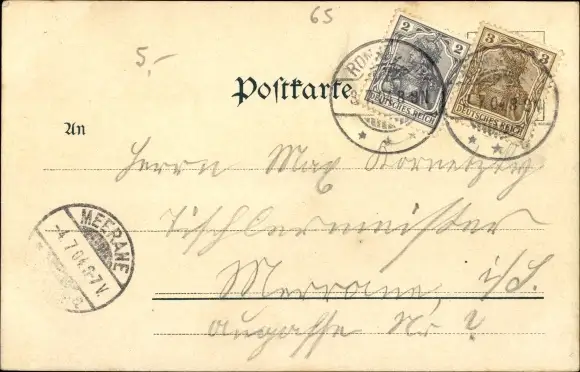 65
5,-
2 2
3 3
DEUTSCHES REICH
DEUTSCHES REICH
Postkarte
An
Herrn Max
Tischlermeister
MEERANE
-4.7.04.6-7V.
a.
Merrane, i/S.
Augasse Nr 2